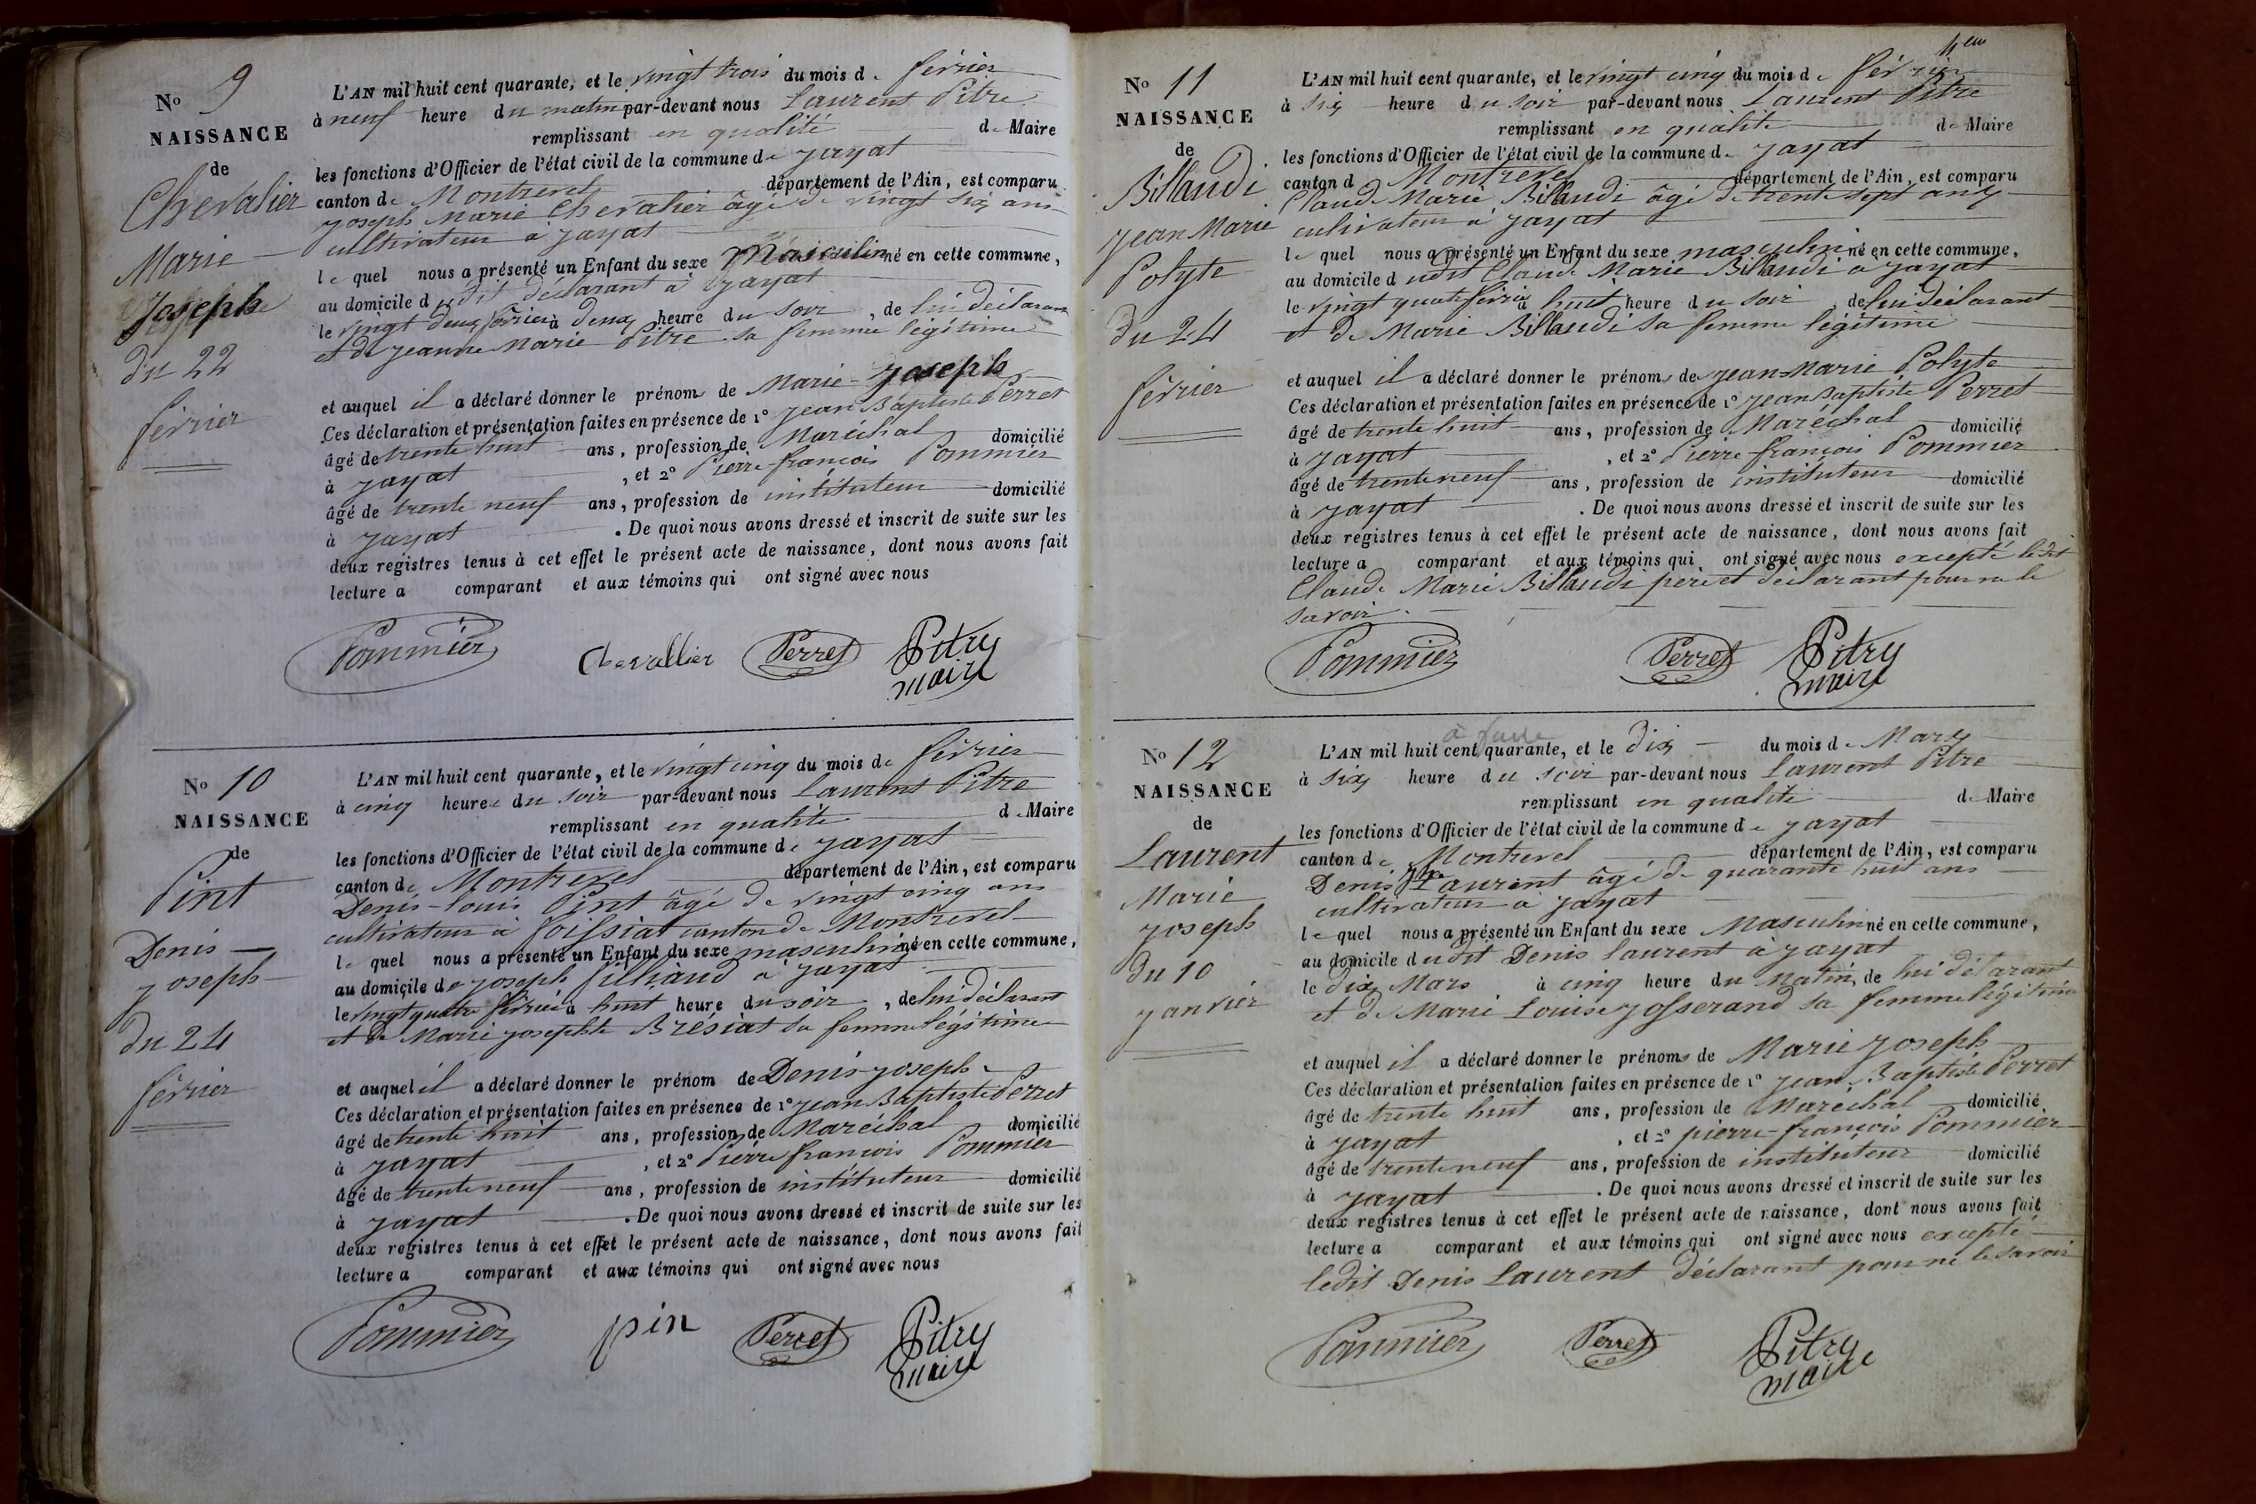 No 9
NAISSANCE
de
Chevalier
Marie
Joseph
du 22
février
L'AN mil huit cent quarante, et le vingt trois du mois de février
à neuf heure du matin par-devant nous Laurent Pitre
remplissant en qualité de Maire
les fonctions d'Officier de l'état civil de la commune de Jayat
canton de Montrevel département de l'Ain, est comparu
Joseph Marie Chevalier âgé de vingt six ans
cultivateur à Jayat
le quel nous a présenté un Enfant du sexe Masculin né en cette commune,
au domicile dudit déclarant à Jayat
le vingt deux février à deux heure du soir, de lui déclarant
et de Jeanne Marie Pitre sa femme légitime
et auquel il a déclaré donner le prénoms de Marie-Joseph
Ces déclaration et présentation faites en présence de 1° Jean Baptiste Perret
âgé de trente huit ans, profession de Maréchal domicilié
à Jayat, et 2° Pierre françois Pommier
âgé de trente neuf ans, profession de instituteur domicilié
à Jayat. De quoi nous avons dressé et inscrit de suite sur les
deux registres tenus à cet effet le présent acte de naissance, dont nous avons fait
lecture a comparant et aux témoins qui ont signé avec nous
Pommier Chevallier Perret Pitry
maire
No 10
NAISSANCE
de
Pint
Denis
joseph
du 24
février
L'AN mil huit cent quarante, et le vingt cinq du mois de février
à cinq heure du soir par-devant nous Laurent Pitre
remplissant en qualité de Maire
les fonctions d'Officier de l'état civil de la commune de Jayat
canton de Montrevel département de l'Ain, est comparu
Denis-Louis Pint âgé de vingt cinq ans
cultivateur à foissiat canton de Montrevel
le quel nous a présenté un Enfant du sexe masculin né en cette commune,
au domicile de joseph filliaud à Jayat
le vingt quatre février à huit heure du soir, de lui déclarant
et de Marie josephte Brésiat sa femme légitime
et auquel il a déclaré donner le prénom de Denis-joseph
Ces déclaration et présentation faites en présence de 1° Jean Baptiste Perret
âgé de trente huit ans, profession de Maréchal domicilié
à Jayat, et 2° Pierre françois Pommier
âgé de trente neuf ans, profession de instituteur domicilié
à Jayat. De quoi nous avons dressé et inscrit de suite sur les
deux registres tenus à cet effet le présent acte de naissance, dont nous avons fait
lecture a comparant et aux témoins qui ont signé avec nous
Pommier pin Perret Pitry
maire
No 11
NAISSANCE
de
Billaudi
Jean Marie
Polyte
du 24
février
L'AN mil huit cent quarante, et le vingt cinq du mois de février
à six heure du soir par-devant nous Laurent Pitre
remplissant en qualité de Maire
les fonctions d'Officier de l'état civil de la commune d. Jayat
canton d Montrevel département de l'Ain, est comparu
Claude Marie Billaudi âgé de trente sept ans
cultivateur à Jayat
le quel nous a présenté un Enfant du sexe masculin né en cette commune,
au domicile dudit Claude Marie Billaudi à Jayat
le vingt quatre février à huit heure du soir, de lui déclarant
et de Marie Billaudi sa femme légitime
et auquel il a déclaré donner le prénoms de Jean-Marie Polyte
Ces déclaration et présentation faites en présence de 1° Jean Baptiste Perret
âgé de trente huit ans, profession de Maréchal domicilié
à Jayat, et 2° Pierre françois Pommier
âgé de trente neuf ans, profession de instituteur domicilié
à Jayat. De quoi nous avons dressé et inscrit de suite sur les
deux registres tenus à cet effet le présent acte de naissance, dont nous avons fait
lecture a comparant et aux témoins qui ont signé avec nous excepté ledit
Claude Marie Billaudi père et déclarant pour ne le
savoir.
Pommier Perret Pitry
maire
No 12
NAISSANCE
de
Laurent
Marie
joseph
du 10
janvier
L'AN mil huit cent quarante, et le dix du mois de Mars
à six heure du soir par-devant nous Laurent Pitre
remplissant en qualité de Maire
les fonctions d'Officier de l'état civil de la commune de Jayat
canton de Montrevel département de l'Ain, est comparu
Denis Laurent âgé de quarante huit ans
cultivateur à Jayat
le quel nous a présenté un Enfant du sexe Masculin né en cette commune,
au domicile dudit Denis Laurent à Jayat
le dix Mars à cinq heure du Matin, de lui déclarant
et de Marie Louise Josserand sa femme légitime
et auquel il a déclaré donner le prénoms de Marie joseph
Ces déclaration et présentation faites en présence de 1° Jean Baptiste Perret
âgé de trente huit ans, profession de Maréchal domicilié
à Jayat, et 2° pierre-françois Pommier
âgé de trente neuf ans, profession de instituteur domicilié
à Jayat. De quoi nous avons dressé et inscrit de suite sur les
deux registres tenus à cet effet le présent acte de naissance, dont nous avons fait
lecture a comparant et aux témoins qui ont signé avec nous excepté
ledit Denis Laurent déclarant pour ne le savoir
Pommier Perret Pitry
maire